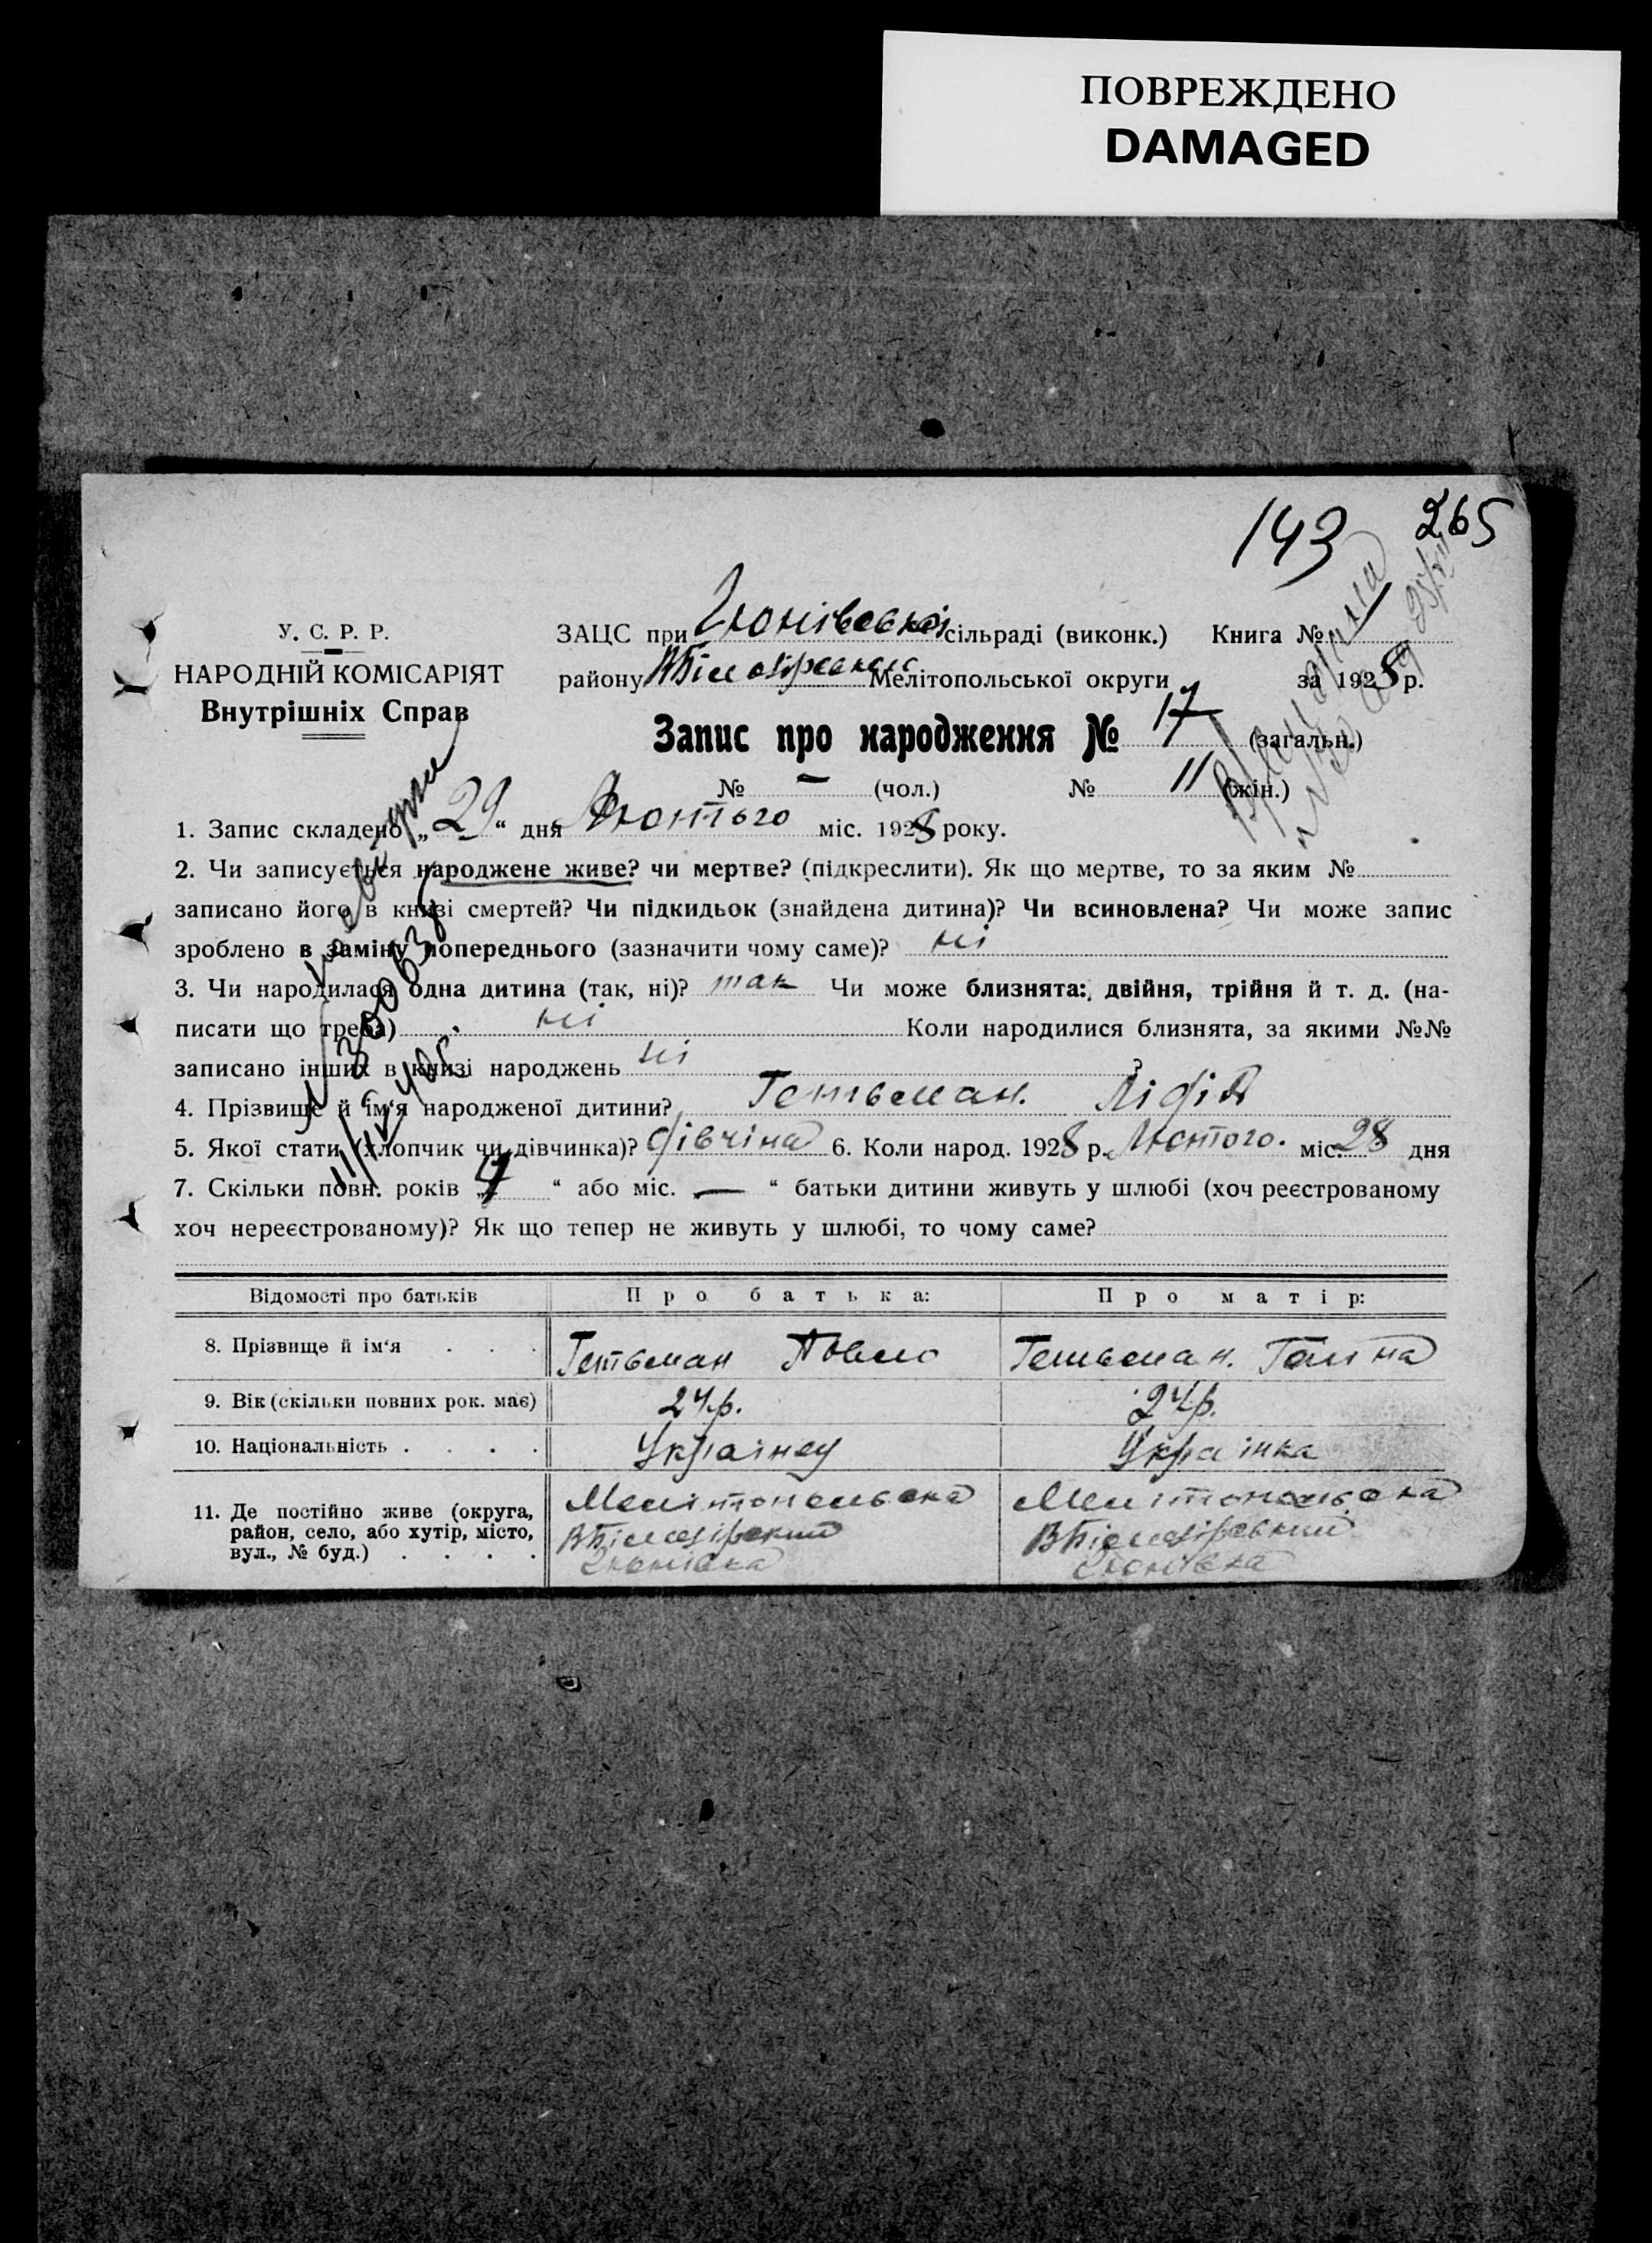 ПОВРЕЖДЕНО
DAMAGED
143 265
У. С. Р. Р.
НАРОДНІЙ КОМІСАРІЯТ
Внутрішніх Справ
ЗАЦС при сільраді (виконк.) Книга №
району Мелітопольської округи за 1928 р.
Запис про народження № 17 (загальн.)
№ — (чол.) № 11 (жін.)
1. Запис складено „29“ дня Лютого міс. 1928 року.
2. Чи записується народжене живе? чи мертве? (підкреслити). Як що мертве, то за яким №
записано його в книзі смертей? Чи підкидьок (знайдена дитина)? Чи всиновлена? Чи може запис
зроблено в заміну попереднього (зазначити чому саме)? ні
3. Чи народилася одна дитина (так, ні)? так Чи може близнята: двійня, трійня й т. д. (на-
писати що треба) ні Коли народилися близнята, за якими №№
записано інших в книзі народжень ні ?
4. Прізвище й ім‘я народженої дитини? Гетьман. Лідія
5. Якої стати (хлопчик чи дівчинка)? дівчіна 6. Коли народ. 1928 р. Лютого. міс. 28 дня
7. Скільки повн. років „4“ або міс. — “ батьки дитини живуть у шлюбі (хоч реєстрованому
хоч нереєстрованому)? Як що тепер не живуть у шлюбі, то чому саме?
Відомості про батьків Про батька: Про матір:
8. Прізвище й ім‘я Гетьман Павло Гетьман. Галина
9. Вік (скільки повних рок. має) 24р. 24р.
10. Національність Українец Українка
11. Де постійно живе (округа, Мелітопольська Мелітопольська
район, село, або хутір, місто,
вул., № буд.)